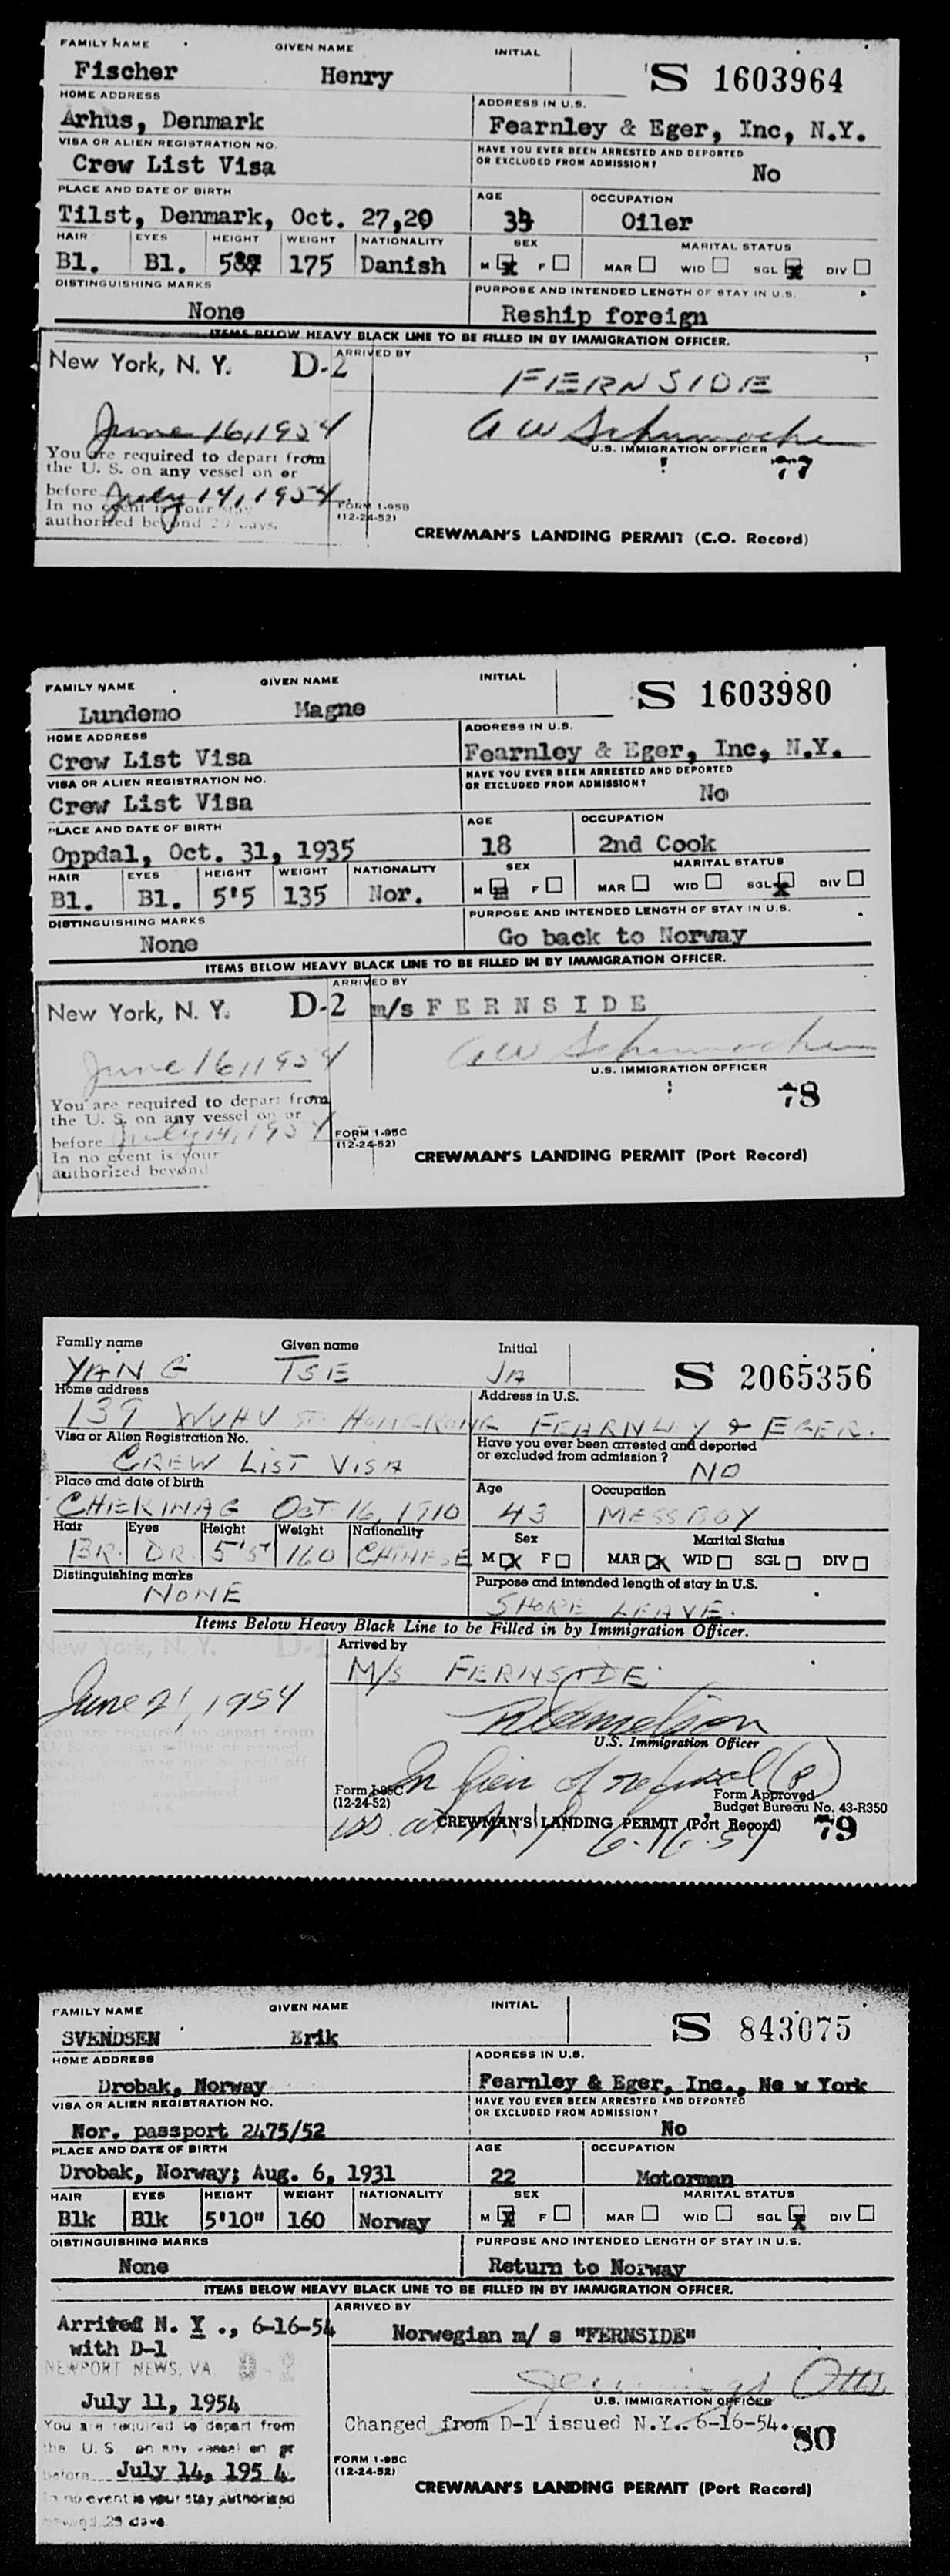 FAMILY NAME GIVEN NAME INITIAL
Fischer Henry S 1603964
HOME ADDRESS ADDRESS IN U.S.
Arhus, Denmark Fearnley & Eger, Inc, N.Y.
VISA OR ALIEN REGISTRATION NO. HAVE YOU EVER BEEN ARRESTED AND DEPORTED OR EXCLUDED FROM ADMISSION?
Crew List Visa No
PLACE AND DATE OF BIRTH AGE OCCUPATION
Tilst, Denmark, Oct. 27,20 Oiler
HAIR EYES HEIGHT WEIGHT NATIONALITY SEX MARITAL STATUS
Bl. Bl. 175 Danish M X F MAR WID SGL X DIV
DISTINGUISHING MARKS PURPOSE AND INTENDED LENGTH OF STAY IN U.S.
None Reship foreign
ITEMS BELOW HEAVY BLACK LINE TO BE FILLED IN BY IMMIGRATION OFFICER.
New York, N. Y. D-2 ARRIVED BY
FERNSIDE
June 16, 1954 A W Schumacher
You are required to depart from U.S. IMMIGRATION OFFICER
the U. S. on any vessel on or 77
before July 14, 1954
In no event is your stay FORM 1-95B
authorized beyond 29 days. (12-24-52)
CREWMAN'S LANDING PERMIT (C.O. Record)
FAMILY NAME GIVEN NAME INITIAL
Lundemo Magne S 1603980
HOME ADDRESS ADDRESS IN U.S.
Crew List Visa Fearnley & Eger, Inc, N.Y.
VISA OR ALIEN REGISTRATION NO. HAVE YOU EVER BEEN ARRESTED AND DEPORTED OR EXCLUDED FROM ADMISSION?
Crew List Visa No
PLACE AND DATE OF BIRTH AGE OCCUPATION
Oppdal, Oct. 31, 1935 18 2nd Cook
HAIR EYES HEIGHT WEIGHT NATIONALITY SEX MARITAL STATUS
Bl. Bl. 5'5 135 Nor. M F MAR WID SGL X DIV
DISTINGUISHING MARKS PURPOSE AND INTENDED LENGTH OF STAY IN U.S.
None Go back to Norway
ITEMS BELOW HEAVY BLACK LINE TO BE FILLED IN BY IMMIGRATION OFFICER.
ARRIVED BY
New York, N. Y. D-2 m/s FERNSIDE
June 16, 1954 A W Schumacher
U.S. IMMIGRATION OFFICER
You are required to depart from 78
the U. S. on any vessel on or
before July 14, 1954 FORM 1-95C
In no event is your (12-24-52)
authorized beyond CREWMAN'S LANDING PERMIT (Port Record)
Family name Given name Initial
YANG TSE JA S 2065356
Home address Address in U.S.
139 WUHU ST HONGKONG FEARNLY & EGER.
Visa or Alien Registration No. Have you ever been arrested and deported or excluded from admission?
CREW LIST VISA NO
Place and date of birth Age Occupation
CHEKINAG OCT 16, 1910 43 MESSBOY
Hair Eyes Height Weight Nationality Sex Marital Status
BR. DR. 5'5" 160 CHINESE M X F MAR X WID SGL DIV
Distinguishing marks Purpose and intended length of stay in U.S.
NONE SHORE LEAVE.
Items Below Heavy Black Line to be Filled in by Immigration Officer.
New York, N. Y. D-1 Arrived by
M/s FERNSIDE.
June 21, 1954
U.S. Immigration Officer
You are required to depart from
In lieu of refusal (P)
Form I-95C Form Approved
(12-24-52) Budget Bureau No. 43-R350
iss. at N.Y. 6-16-54
CREWMAN'S LANDING PERMIT (Port Record) 79
FAMILY NAME GIVEN NAME INITIAL
SVENDSEN Erik S 843075
HOME ADDRESS ADDRESS IN U.S.
Drobak, Norway Fearnley & Eger, Inc., Ne w York
VISA OR ALIEN REGISTRATION NO. HAVE YOU EVER BEEN ARRESTED AND DEPORTED OR EXCLUDED FROM ADMISSION?
Nor. passport 2475/52 No
PLACE AND DATE OF BIRTH AGE OCCUPATION
Drobak, Norway; Aug. 6, 1931 22 Motorman
HAIR EYES HEIGHT WEIGHT NATIONALITY SEX MARITAL STATUS
Blk Blk 5'10" 160 Norway M X F MAR WID SGL X DIV
DISTINGUISHING MARKS PURPOSE AND INTENDED LENGTH OF STAY IN U.S.
None Return to Norway
ITEMS BELOW HEAVY BLACK LINE TO BE FILLED IN BY IMMIGRATION OFFICER.
ARRIVED BY
Arrived N. Y ., 6-16-54 Norwegian m/ s "FERNSIDE"
with D-1
NEWPORT NEWS, VA. D-2 Jennings Otts
July 11, 1954 U.S. IMMIGRATION OFFICER
You are required to depart from Changed from D-1 issued N.Y. 6-16-54.
the U. S. on any vessel on or 80
before July 14, 195 4. FORM 1-95C
In no event is your stay authorized (12-24-52)
beyond 29 days CREWMAN'S LANDING PERMIT (Port Record)